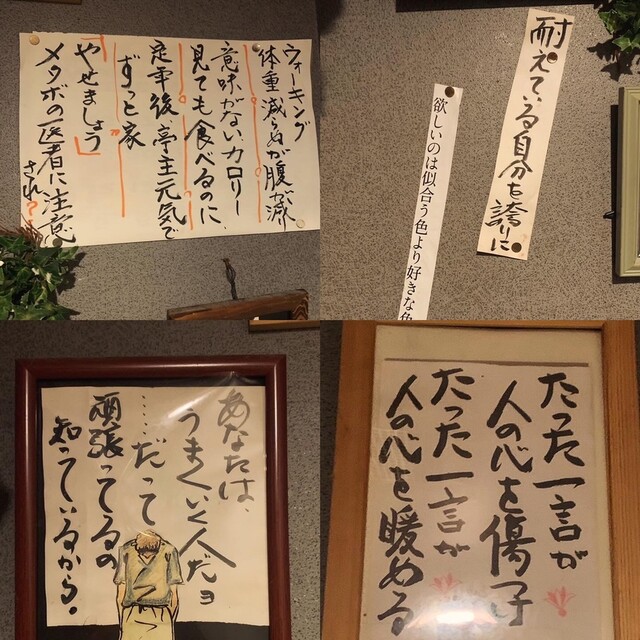 ウォーキング
体重減らぬが腹が減
意味がないカロリー
見ても食べるのに、
定年後亭主元気で
ずっと家
「やせましょう」
メタボの医者に注意
され?
耐えている自分を誇りに
欲しいのは似合う色より好きな色
あなたは、
うまくいく人だョ
……だって
頑張ってるの
知っているから。
たった一言が
人の心を傷
たった一言が
人の心を暖める